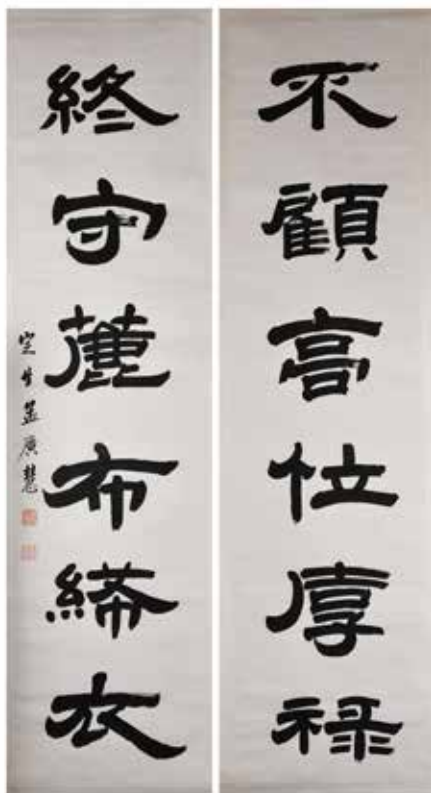 不顧高位厚祿
終守布衣
定生孟廣慧